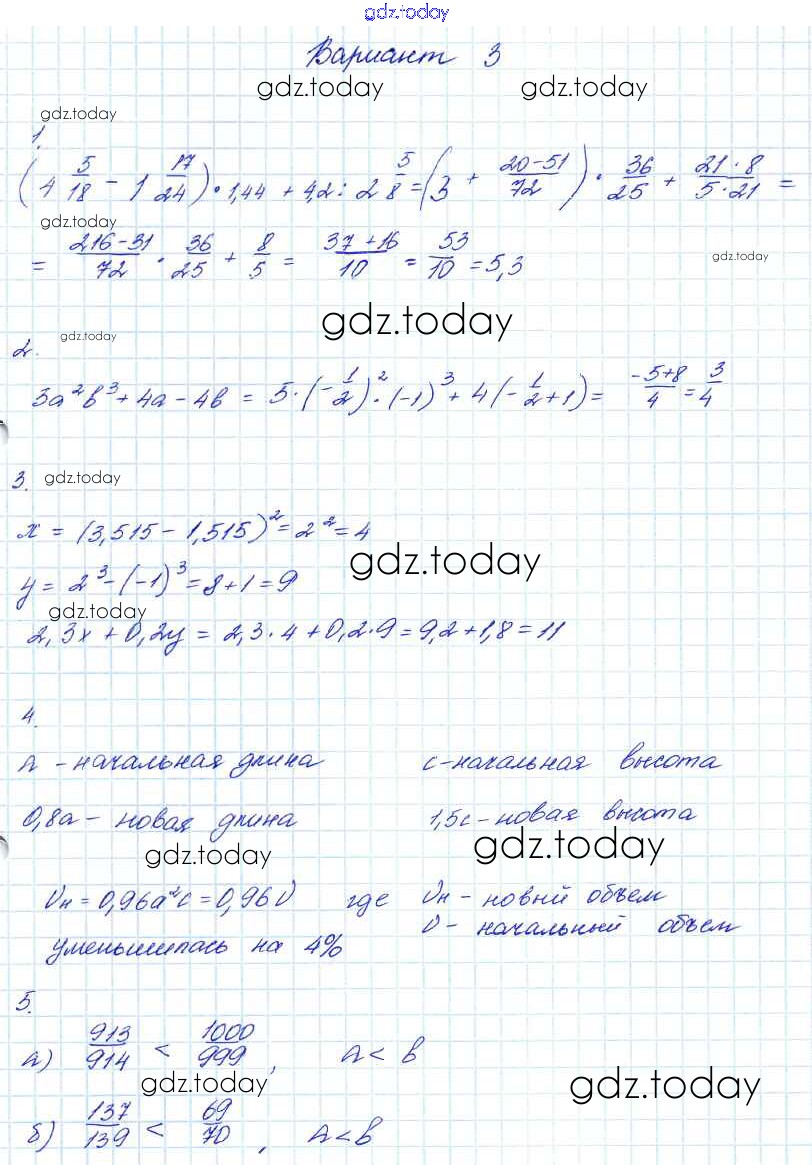 gdz.today
Вариант 3
gdz.today gdz.today
gdz.today
1.
(4 5/18 - 1 17/24) · 1,44 + 4,2 : 2 5/8 = (3 + (20-51)/72) · 36/25 + (21·8)/(5·21) =
gdz.today
= (216-31)/72 · 36/25 + 8/5 = (37+16)/10 = 53/10 = 5,3
gdz.today
gdz.today
2. gdz.today
5a²b³ + 4a - 4b = 5·(-1/2)²·(-1)³ + 4(-1/2+1) = (-5+8)/4 = 3/4
3. gdz.today
x = (3,515 - 1,515)² = 2² = 4
gdz.today
y = 2³ - (-1)³ = 8+1 = 9
gdz.today
2,3x + 0,2y = 2,3·4 + 0,2·9 = 9,2 + 1,8 = 11
4.
a - начальная длина c - начальная высота
0,8a - новая длина 1,5c - новая высота
gdz.today gdz.today
Vн = 0,96a²c = 0,96V где Vн - новый объем
V - начальный объем
уменьшилась на 4%
5.
а) 913/914 < 1000/999, a < b
gdz.today gdz.today
б) 137/139 < 69/70, a < b